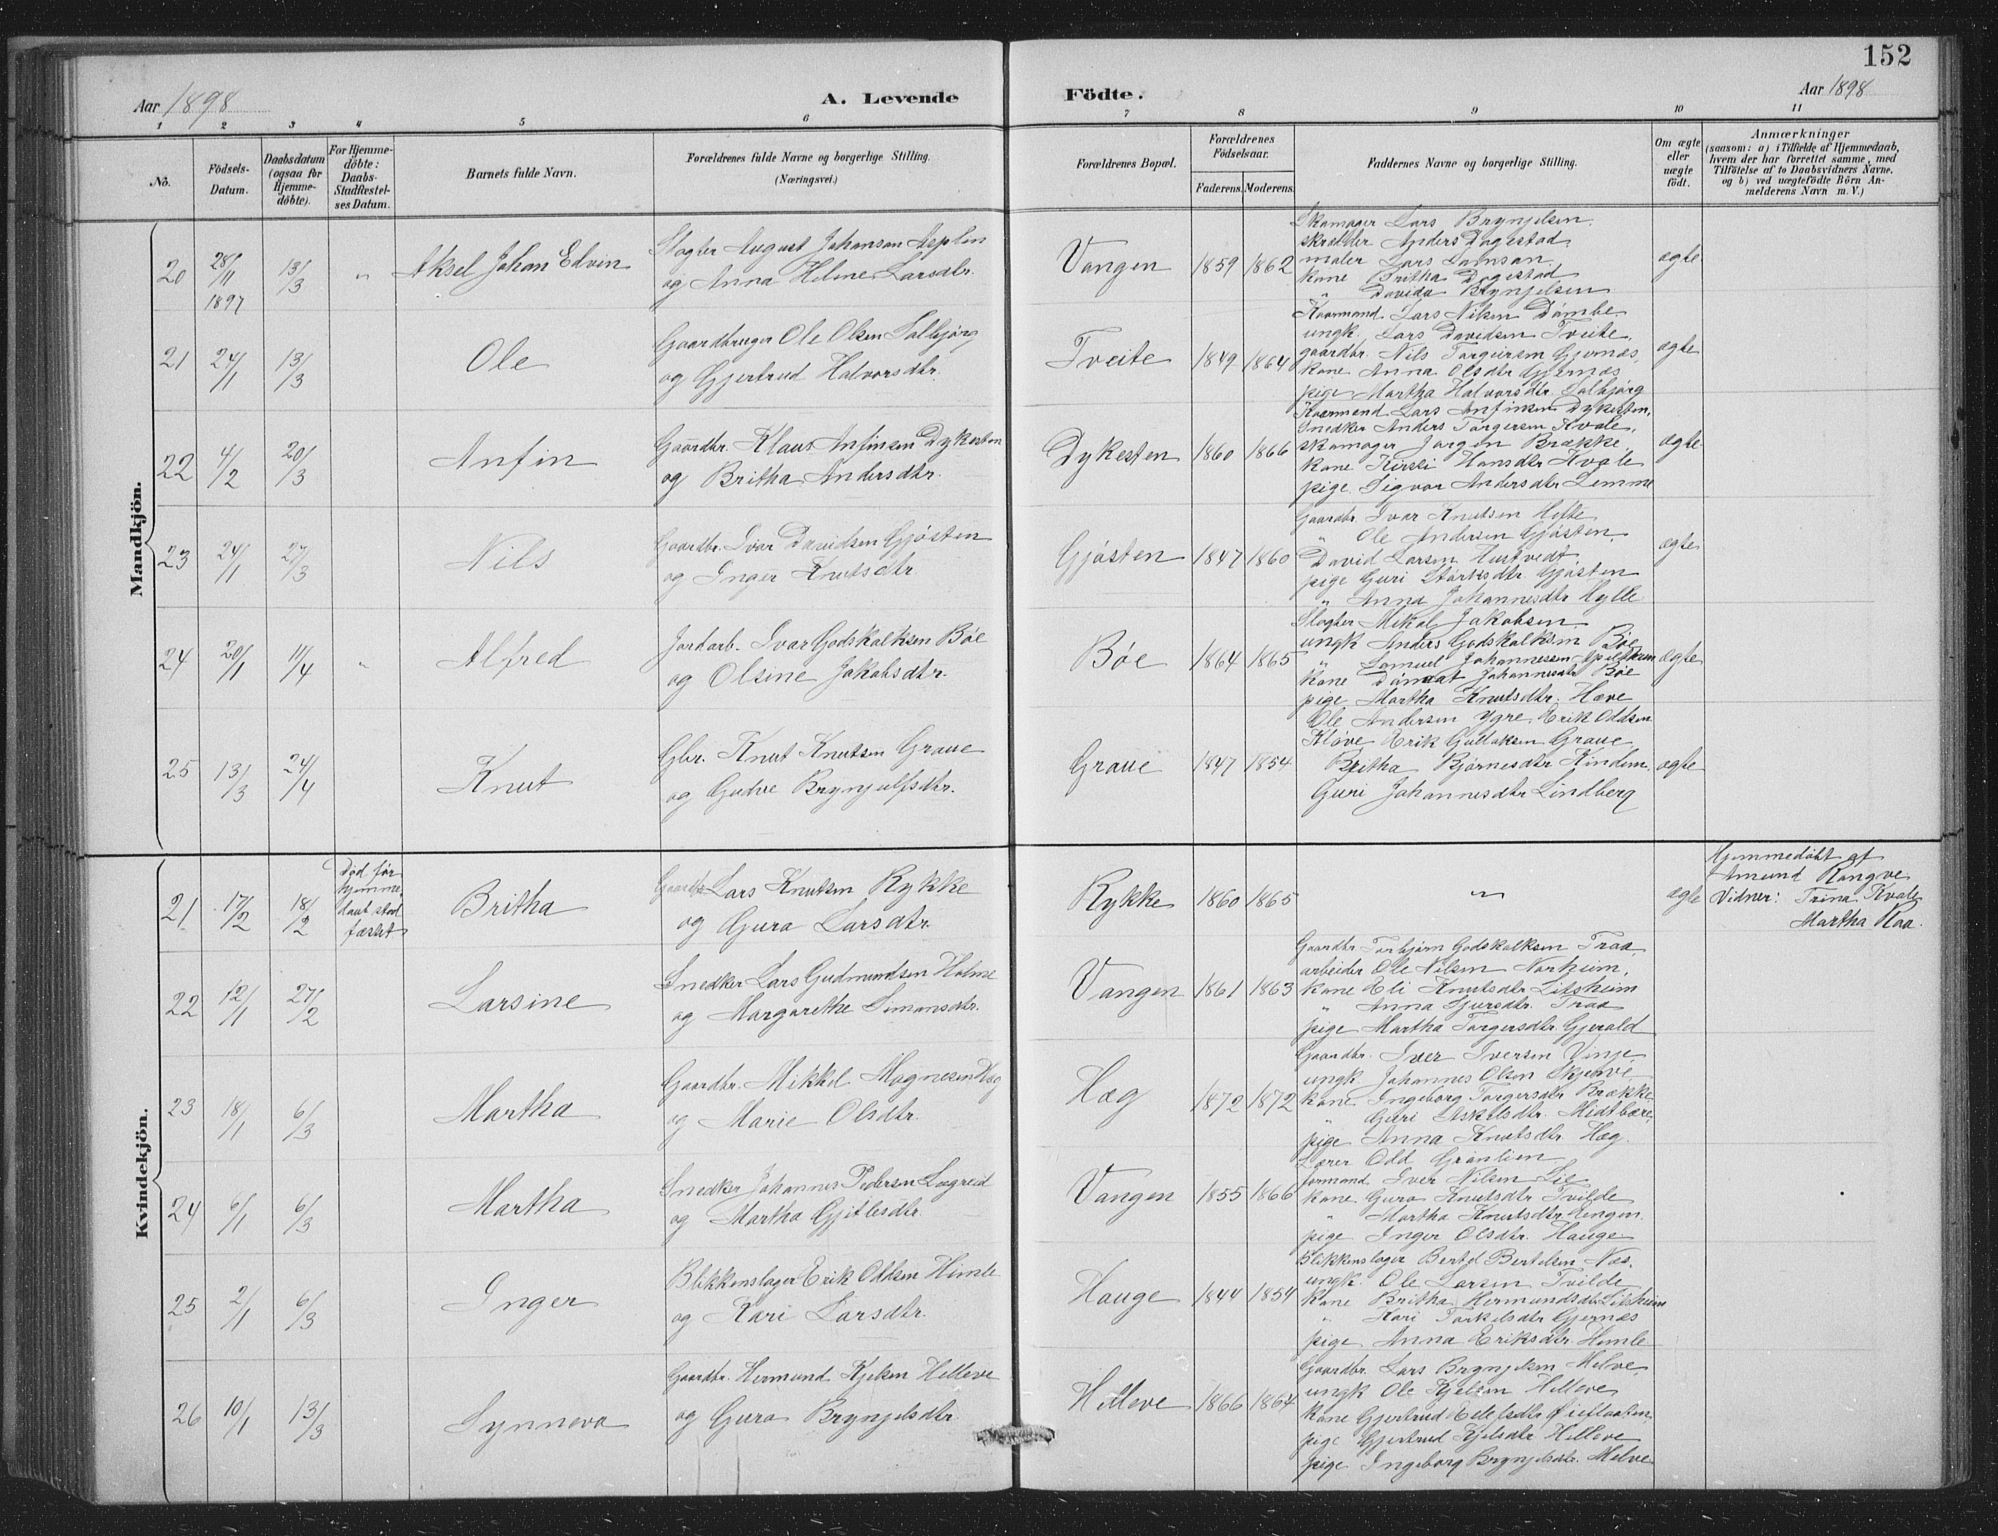 152
Aar 1898
A. Levende
Födte.
Aar 1898
1 2 3 4 5 6 7 8 9 10 11
No.
Födsels-
Datum.
Daabsdatum
(ogsaa for
Hjemme-
döbte).
For Hjemme-
döbte:
Daabs-
Stadfæstel-
ses Datum.
Barnets fulde Navn.
Forældrenes fulde Navne og borgerlige Stilling.
(Næringsvei.)
Forældrenes Bopæl.
Forældrenes
Födselsaar.
Faderens.
Moderens.
Faddernes Navne og borgerlige Stilling.
Om ægte
eller
uægte
födt.
Anmærkninger
(saasom: a) i Tilfælde af Hjemmedaab,
hvem der har forrettet samme, med
Tilföielse af to Daabsvidners Navne,
og b) ved uægtefödte Börn An-
melderens Navn m. V.)
Mandkjön.
20
28/11
1897
13/3
"
Aksel Johan Edvin
Slagter August Johansen Asplin
og Anna Helene Larsdtr.
Vangen
1859
1862
Skomager Lars Brynjelsen
skrædder Anders Dagestad
maler Lars Lamsan
kone Britha Dagestad
" Davida Brynjelsen
ægte
21
24/1
13/3
Ole
Gaardbruger Ole Olsen Salbjørg
og Gjertrud Halvorsdtr.
Tveite
1849
1864
Kaarmand Lars Nilsen Dømbe
ungk. Lars Davidsen Tveite
gaardbr. Nils Torgersen Gjernæs
kone Anna Olsdtr Gjernæs
pige Martha Halvorsdtr Salbjørg
ægte
22
4/2
20/3
Anfin
Gaardbr. Klaus Anfinsen Dykesten
og Britha Andersdtr.
Dykesten
1860
1866
Kaarmand Lars Anfinsen Dykesten,
Snedker Anders Torgersen Kvale,
skomager Jørgen Brække
kone Kirsti Hansdtr Kvale
pige Sigvor Andersdtr Lemme
ægte
23
24/1
27/3
Nils
Gaardbr. Ivar Davidsen Gjøsten
og Inger Knutsdtr
Gjøsten
1847
1860
Gaardbr. Ivar Knutsen Hefte
" Ole Andersen Gjøsten
David Larsen Hustvedt
pige Guri Størksdtr Gjøsten
" Anna Johannesdtr Hylle
ægte
24
20/1
11/4
"
Alfred
Jordarb. Ivar Godskalksen Bøe
og Olsine Jakobsdtr.
Bøe
1864
1865
Slagter Mikal Jakobsen
ungk Anders Godskalksen Bøe
" Samuel Johannessen
kone Johannesdtr Bøe
pige Martha Knutsdtr. Hæve
ægte
25
13/3
24/4
Knut
Gbr. Knut Knutsen Graue
og Gudve Brynjulfsdtr.
Graue
1847
1854
Ole Andersen Ygre, Erik Oddsen
Kløve Erik Gullaksen Graue
Britha Bjørnesdtr Kindem
Guri Johannesdtr Lindberg
ægte
Kvindekjön.
21
17/2
18/2
Død før
hjemme
daab stad
fæstet
Britha
Gaardbr. Lars Knutsen Rykke
og Guro Larsdtr.
Rykke
1860
1865
"
ægte
Hjemmedøbt af
Amund Rongve
Vidner: Trina Kvale
Martha Raa.
22
12/1
27/2
Larsine
Snedker Lars Gudmundsen Holme
og Margarethe Simonsdtr.
Vangen
1861
1863
Gaardbr. Torbjørn Godskalksen Traa
arbeider Ole Nilsen Norheim,
kone Eli Knutsdtr Litsheim
" Anna Sjursdtr. Traa
pige Martha Torgersdtr. Gjerald
23
18/1
6/3
Martha
Gaardbr. Mikkel Magnesen Hæg
og Marie Olsdtr.
Hæg
1872
1872
Gaardbr. Iver Iversen Vinje
ungk. Johannes Olsen Skjerve
kone Ingeborg Torgersdtr Brække
" Guri Askelsdtr. Midtbære,
pige Anna Knutsdtr. Hæg
24
6/1
6/3
Martha
Snedker Johannes Pedersen Løgreid
og Martha Gjitlesdtr.
Vangen
1855
1866
Lærer Odd Grønlien
formand Iver Nilsen Lie
kone Guro Knutsdtr Tvilde
" Martha Knutsdtr. Rengen
pige Inger Olsdtr. Hauge
25
2/1
6/3
Inger
Blikkenslager Erik Oddsen Himle
og Kari Larsdtr.
Hauge
1844
1854
Blikkenslager Bertel Bertelsen Næs.
ungk. Ole Larsen Tvilde
kone Britha Hermundsdtr. Litsheim
" Kari Torkelsdtr Gjernæs
pige Anna Eriksdtr. Himle
26
10/1
13/3
Synneva
Gaardbr. Hermund Kjelsen Helleve
og Guro Brynjelsdtr.
Helleve
1866
1864
Gaardbr. Lars Brynjelsen Melve
ungk Ole Kjelsen Helleve
kone Gjertrud
pige Gjertrud Kjelsdtr Helleve
pige Ingeborg Brynjelsdtr. Melve